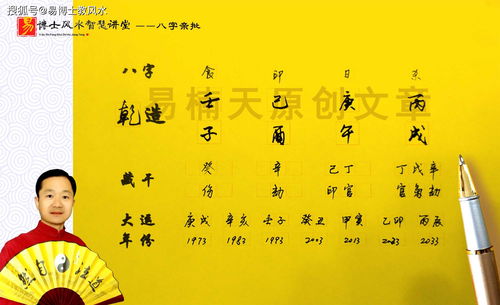 搜狐号@易博士教风水
易博士风水智慧讲堂 ——八字亲批
八字 食 印 日 杀
乾造 壬 己 庚 丙
子 酉 午 戌
易楠天原创文章
藏干 癸 辛 己丁 丁戊辛
伤 劫 印官 官枭劫
大运 庚戌 辛亥 壬子 癸丑 甲寅 乙卯 丙辰
年份 1973 1983 1993 2003 2013 2023 2033